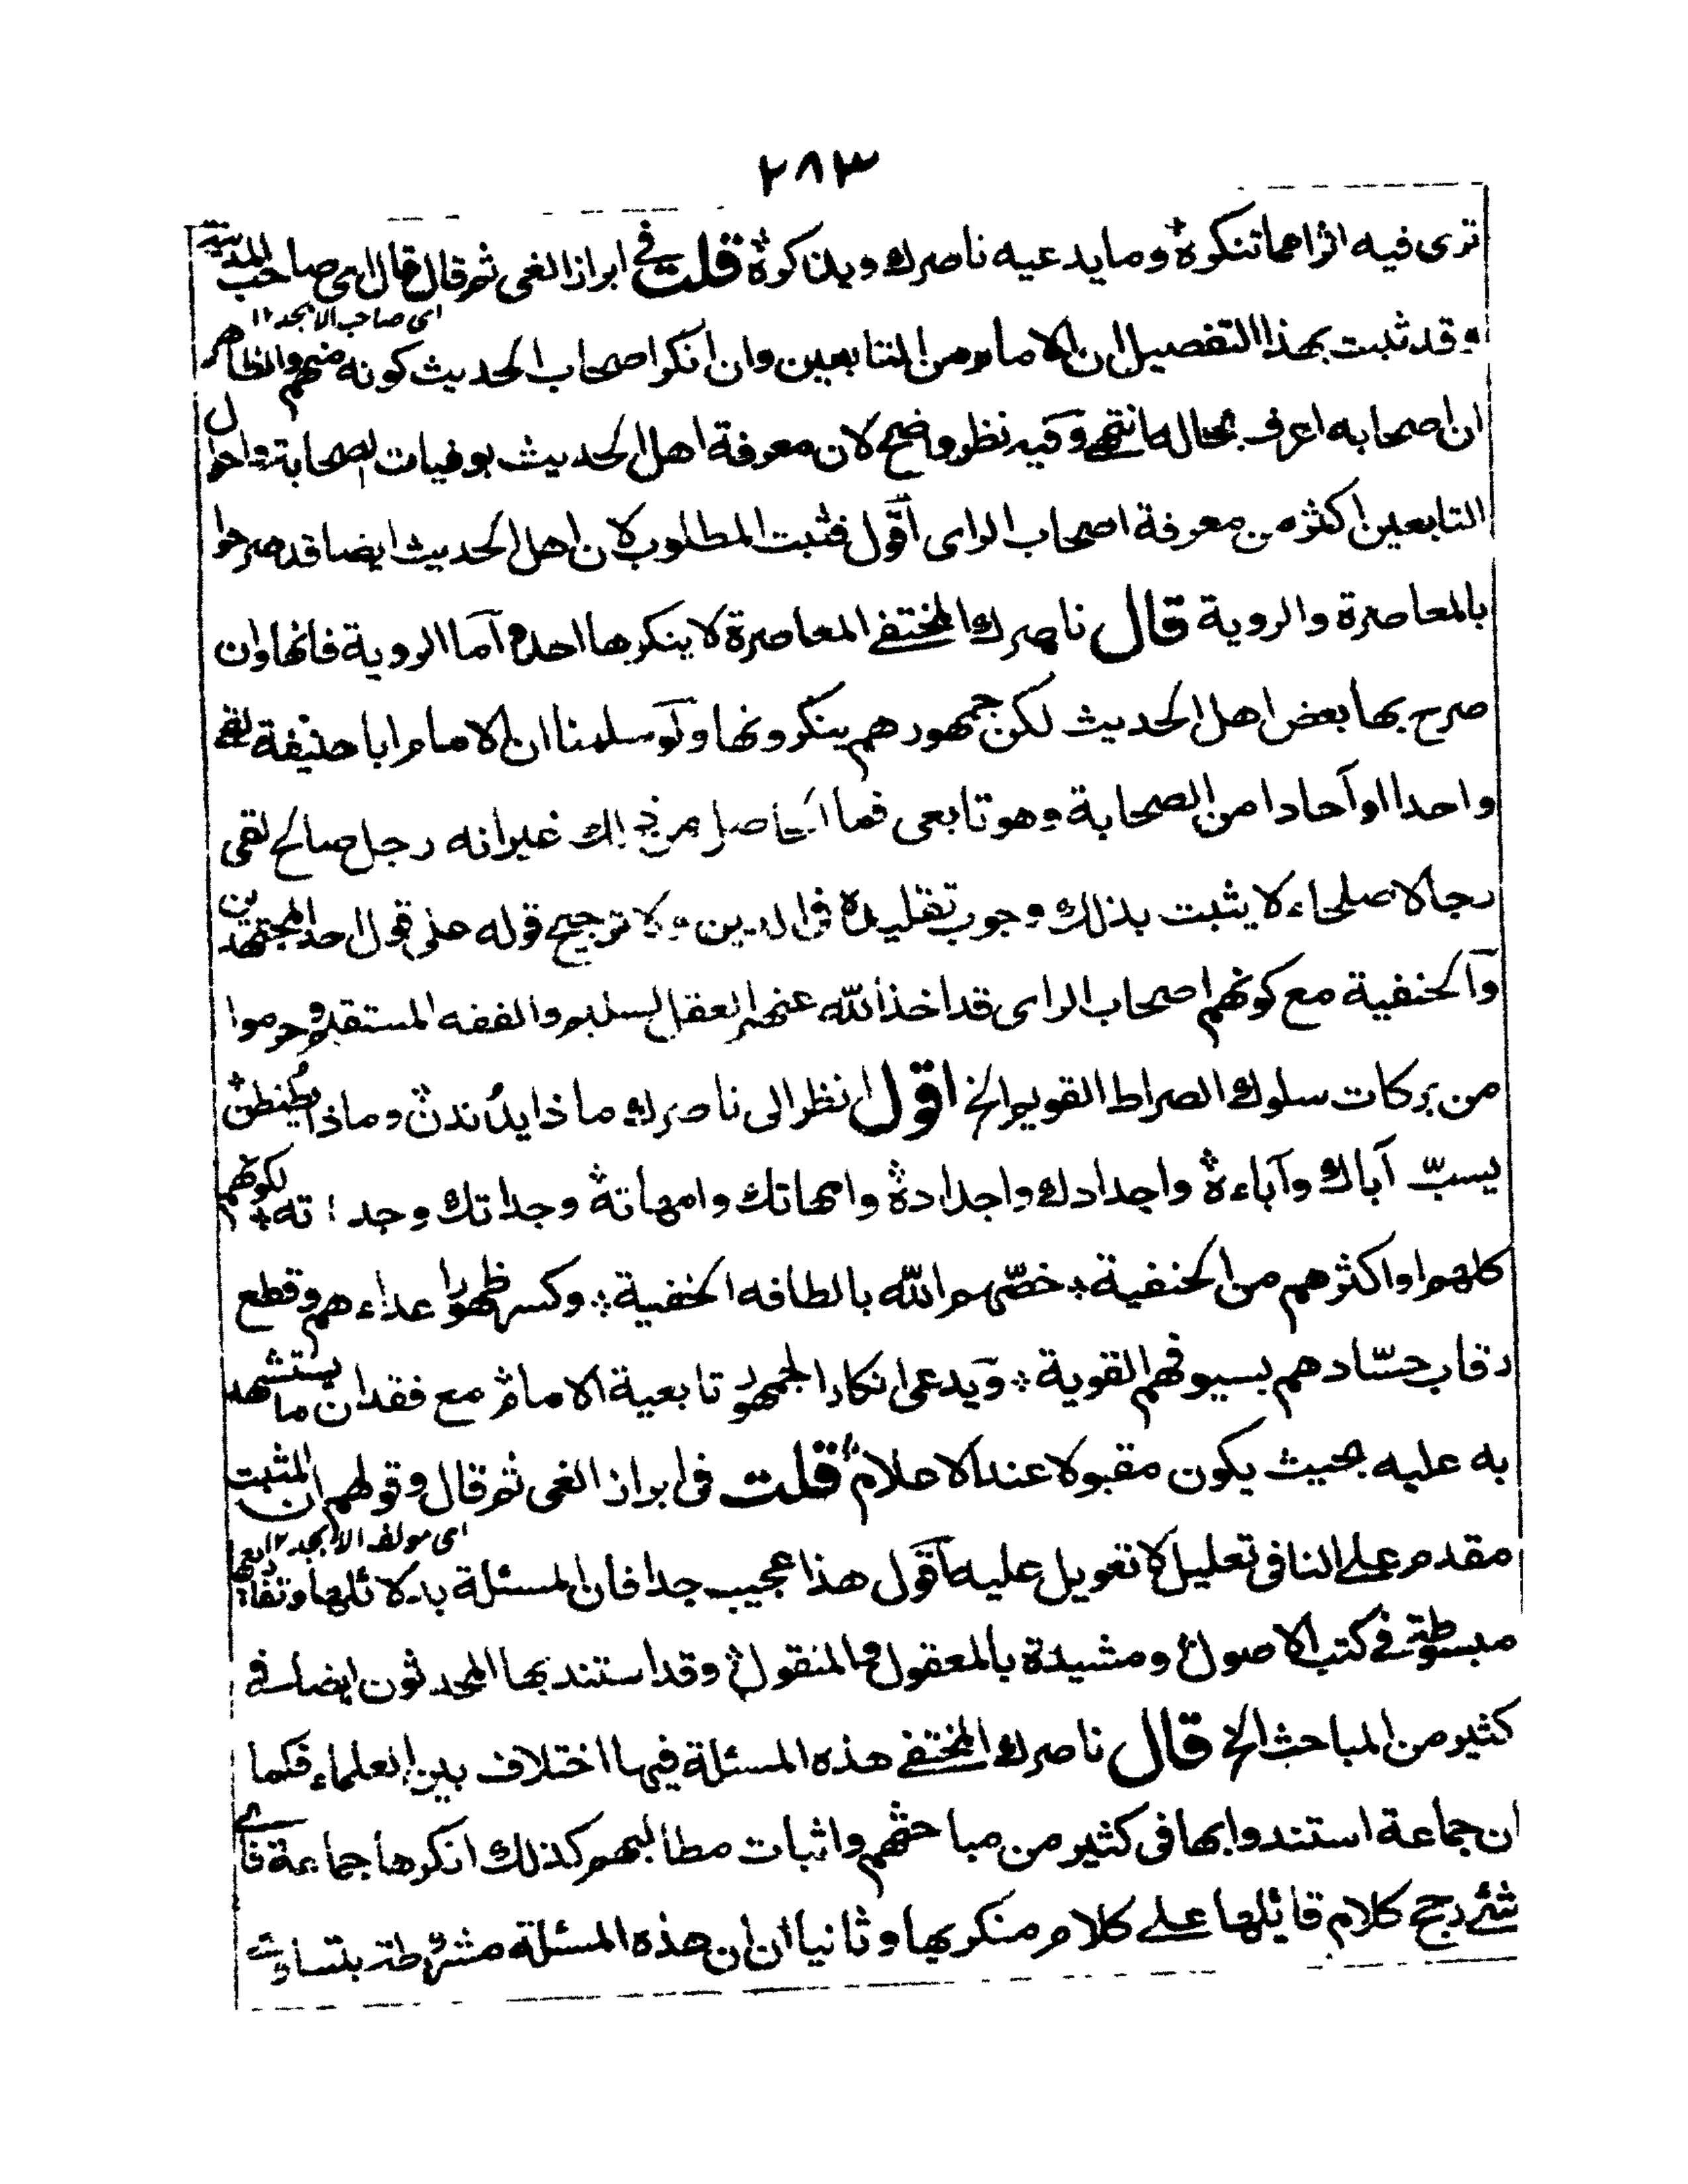 ٢٨٣
ترى فيه اثرا مما تنكره ÷ وما يدعيه ناصرك ويذكره ÷ قلت في ابراز الغي ثم قال قال اى صاحب المدينة
اى صاحب الابجد ١٢
وقد ثبت بهذا التفصيل ان الامام من التابعين وان انكر اصحاب الحديث كونه منهم والظاهر
ان اصحابه اعرف بحاله انتهى وفيه نظر واضح لان معرفة اهل الحديث بوفيات الصحابة واحوال
التابعين اكثر من معرفة اصحاب الراى اقول فثبت المطلوب لان اهل الحديث ايضا قد صرحوا
بالمعاصرة والروية قال ناصرك المختفے المعاصرة لا ينكرها احد و اما الروية فانها وان
صرح بها بعض اهل الحديث لكن جمهورهم ينكرونها ولو سلمنا ان الامام ابا حنيفة لقے
واحدا او آحادا من الصحابة وهو تابعى فما الحاصل من ذلك غير انه رجل صالح لقى
رجالا صلحاء لا يثبت بذلك وجوب تقليده في الدين ولا ترجيح قوله على قول احد المجتهدين
والحنفية مع كونهم اصحاب الراى قد اخذ الله عنهم العقل السليم والفقه المستقيم وحرموا
من بركات سلوك الصراط القويم الخ اقول انظر الى ناصرك ما ذا يدندن ÷ وماذا يطنطن ÷
يسبّ آباك وآباءه ÷ واجدادك واجداده ÷ وامهاتك وامهاته ÷ وجداتك وجداته ÷ لكونهم
كلهم او اكثرهم من الحنفية ÷ خصّهم الله بالطافه الخفية ÷ وكسر ظهور اعداءهم وقطع
رقاب حسّادهم بسيوفهم القوية ÷ ويدعى انكار الجمهور تابعية الامام ÷ مع فقدان ما يستشهد
به عليه بحيث يكون مقبولا عند الاعلام ÷ قلت في ابراز الغي ثم قال وقولهم ان المثبت
اى مولف الابجد ١٢
مقدم على النافى تعليل لا تعويل عليه اقول هذا عجيب جدا فان المسئلة بدلائلها وتفاريعها
مبسوطة في كتب الاصول ÷ ومشيدة بالمعقول والمنقول ÷ وقد استند بها المحدثون ايضا في
كثير من المباحث الخ قال ناصرك المختفے هذه المسئلة فيها اختلاف بين العلماء فكما
ان جماعة استندوا بها فى كثير من مباحثهم واثبات مطالبهم كذلك انكرها جماعة فاے
شئے رجح كلام قائلها علے كلام منكريها وثانيا ان هذه المسئلة مشروطة بتساوى